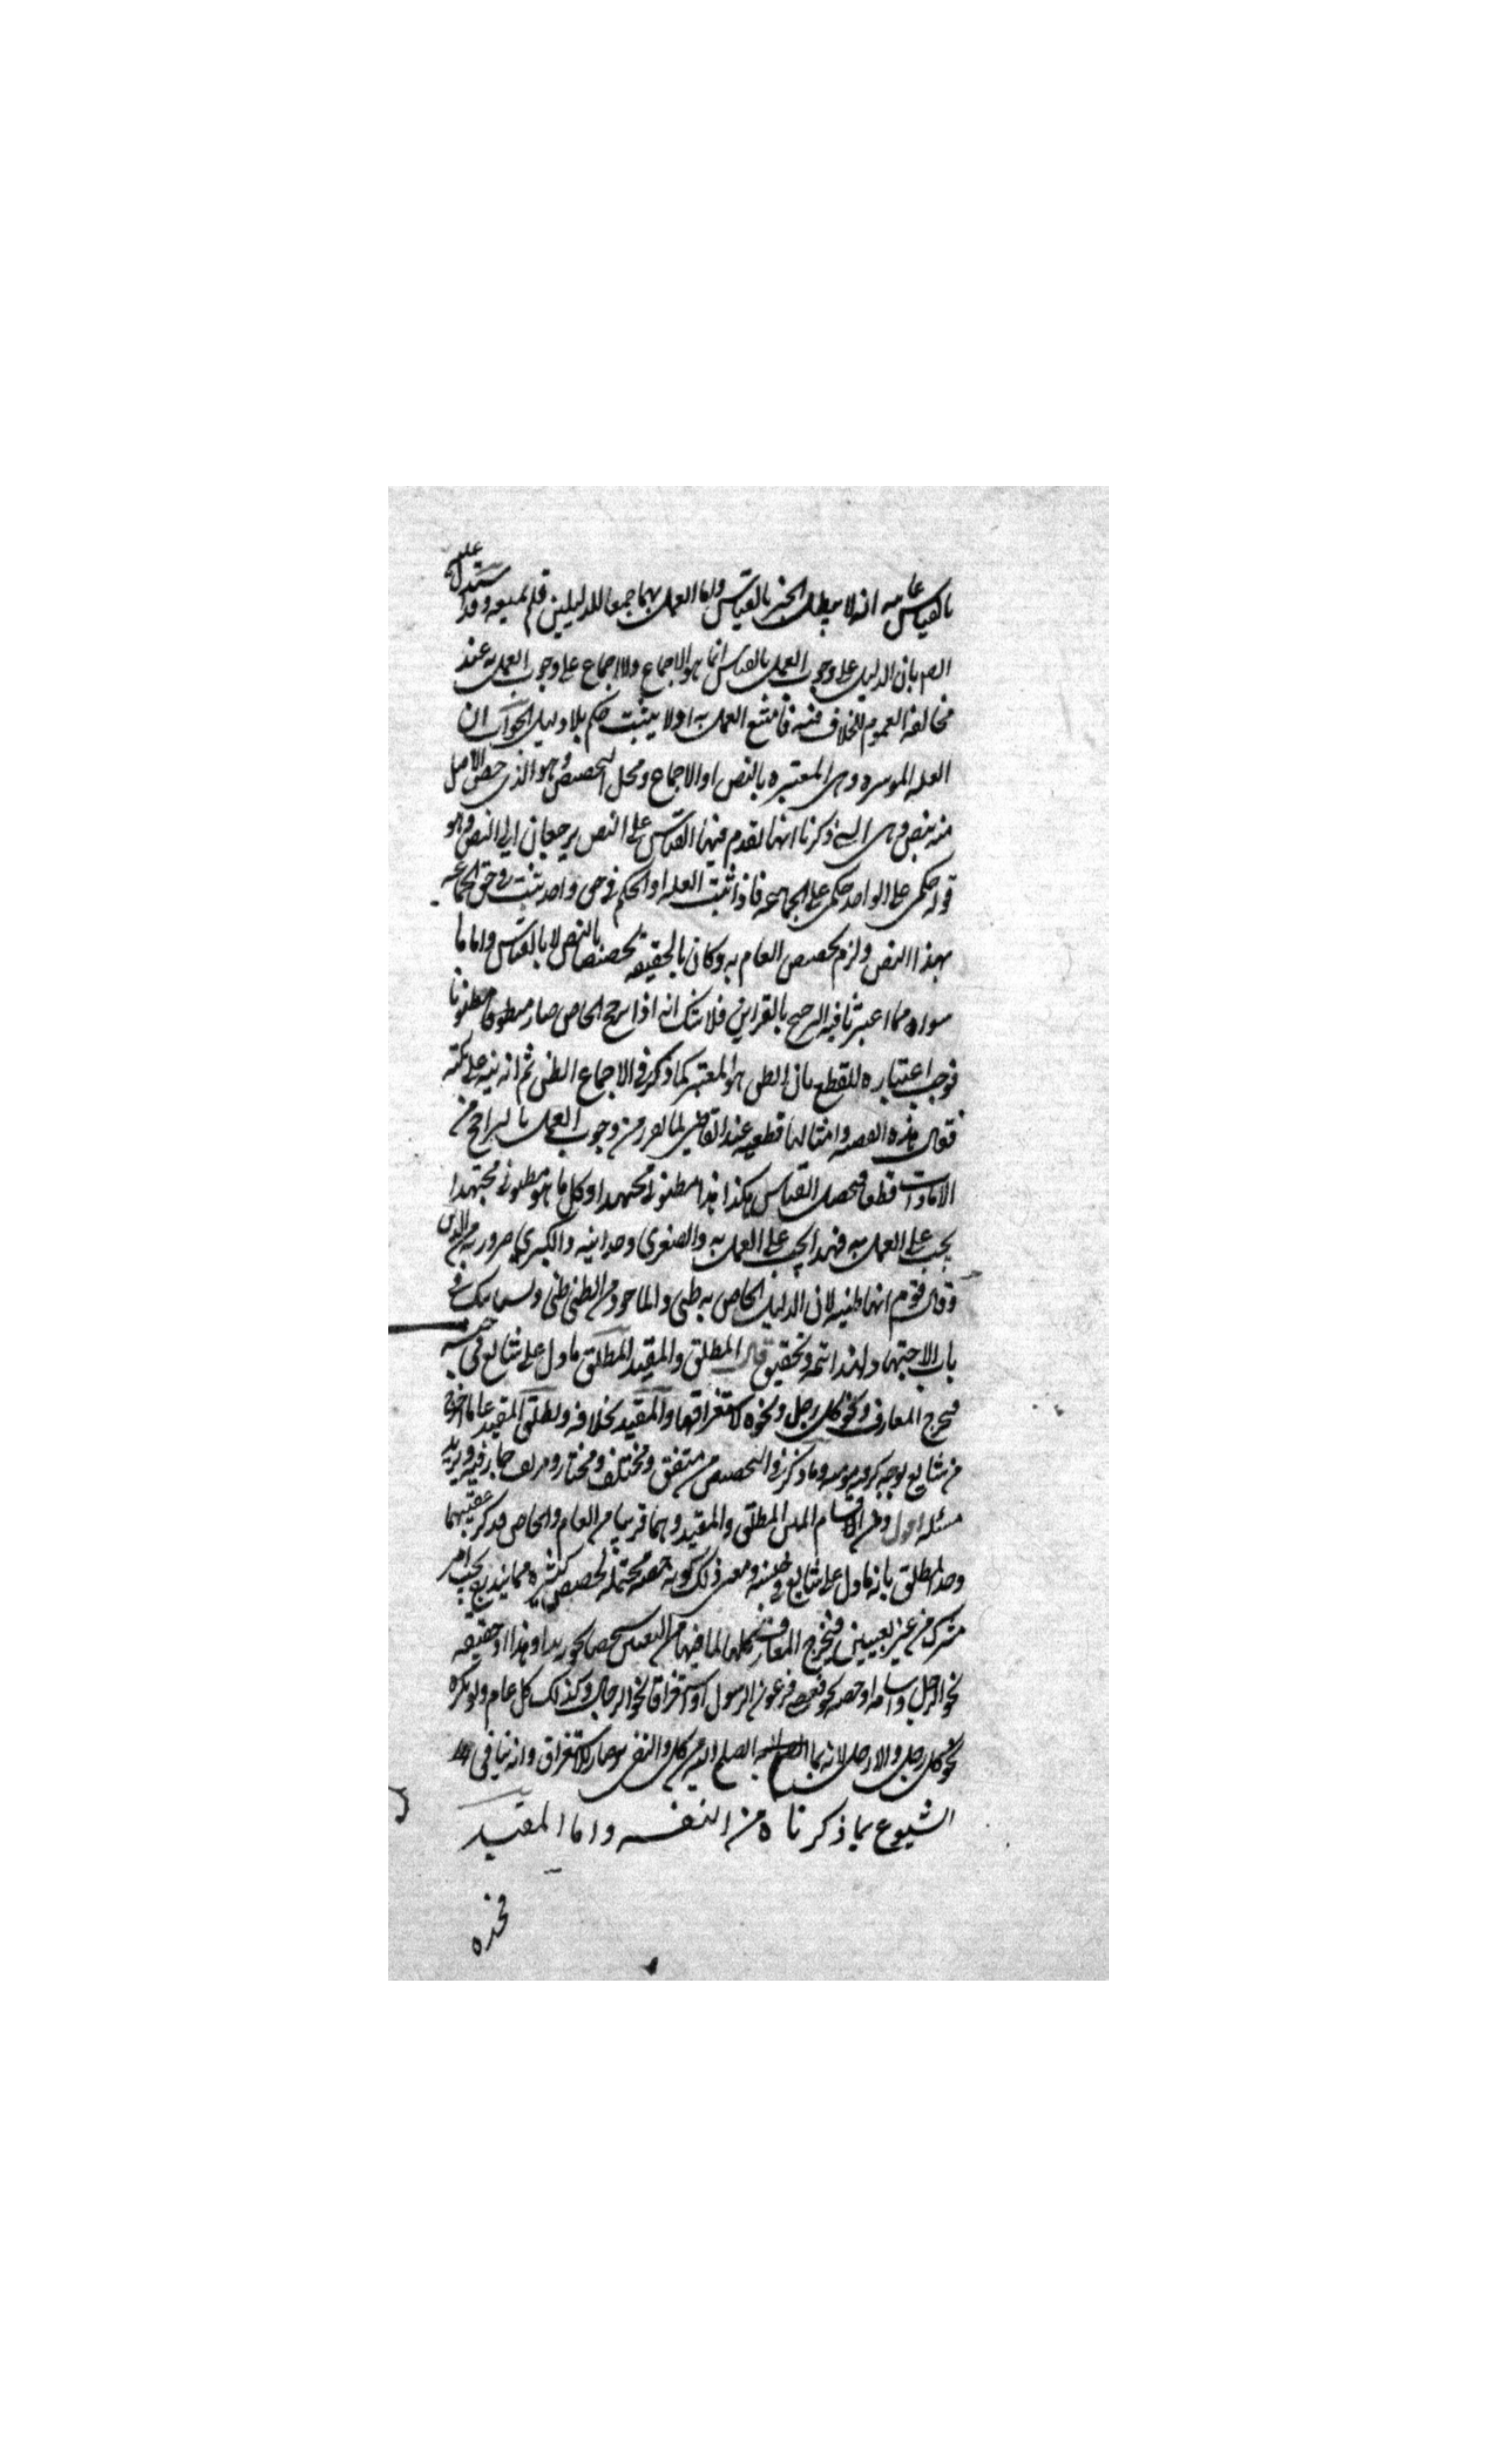 بالقياس عامه انه لا يبطل الخبر بالقياس واما العمل بهما جمعا للدليلين فلم نمنعه وقد يستدل عليه
الخصم بان الدليل على وجوب العمل بالقياس انما هو الاجماع ولا اجماع على وجوب العمل به عند
مخالفة العموم للخلاف فيه فامتنع العمل به اذ لا يثبت حكم بلا دليل الجواب ان
العله الموثره وهى المعتبره بالنص او الاجماع ومحل التخصيص وهو الذى خص الاصل
منه بنص وهى التى ذكرنا انهما تقدم فيهما القياس على النص يرجعان الى النص وهو
قوله حكمى على الواحد حكمى على الجماعه فاذا ثبت العله او الحكم فى حق واحد ثبت فى حق الجماعه
بهذا النص ولزم تخصيص العام به وكان بالحقيقه تخصيصا بالنص لا بالقياس واما ما
سواه مما اعتبرنا فيه الترجيح بالقراين فلا شك انه اذا رجح الخاص صار مظنونا
فوجب اعتباره للقطع بان الظن هو المعتبر كما ذكر فى الاجماع الظنى ثم انه نبه على نكته
فقال هذه القضيه وامثالها قطعيه عند القاضى لما تقرر من وجوب العمل بالراجح من
الامارات قطعا فيحصل القياس هكذا هذا مظنونى مجتهدا وكل ما هو مظنونى مجتهدا
يجب على العمل به فهذا يجب على العمل به والصغرى وجدانيه والكبرى ضروريه من الدين
وقال قوم انها ظنيه لان الدليل الخاص به ظنى والماخوذ من الظنى ظنى وسياتيك فى
باب الاجتهاد لهذا تتمه وتحقيق قال المطلق والمقيد المطلق ما دل على شائع فى جنسه
فيخرج المعارف ونحو كل رجل ونحوه لاستغراقها والمقيد بخلافه ويطلق المقيد على ما اخرج
من شايع بوجه كرقبه مومنه وما ذكر فى التخصيص من متفق ومختلف ومختار ومزيف جار فيه ويزيد
مسئله اقول ومن اقسام المتن المطلق والمقيد وهما قريبان من العام والخاص فذكر عقيبهما
وحد المطلق بانه ما دل على شايع فى جنسه ومعنى ذلك كونه حصه محتمله لحصص كثيره مما يندرج تحت امر
مشترك من غير تعيين فيخرج المعارف كلها لما فيها من التعيين شخصا نحو زيد وهذا او حقيقه
نحو الرجل واسامه او حصه نحو فعصى فرعون الرسول او استغراقا نحو الرجال وكذلك كل عام ولو نكره
نحو كل رجل ولا رجل لانه بما انضم اليه من كل والنفى صار للاستغراق وانه ينافى
الشيوع بما ذكرناه من التفسير واما المقيد
فحده